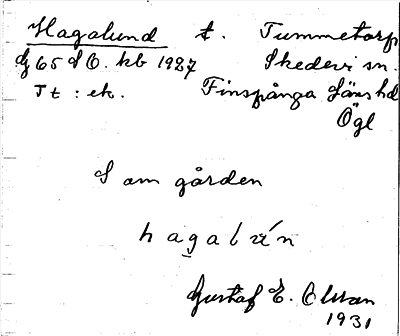 Hagalund t. Tummetorp
Skedevi sn.
Jt : ek. Finspånga läns hd
Ögl
S om gården
hagalún
Gustaf E. Olsson
1931